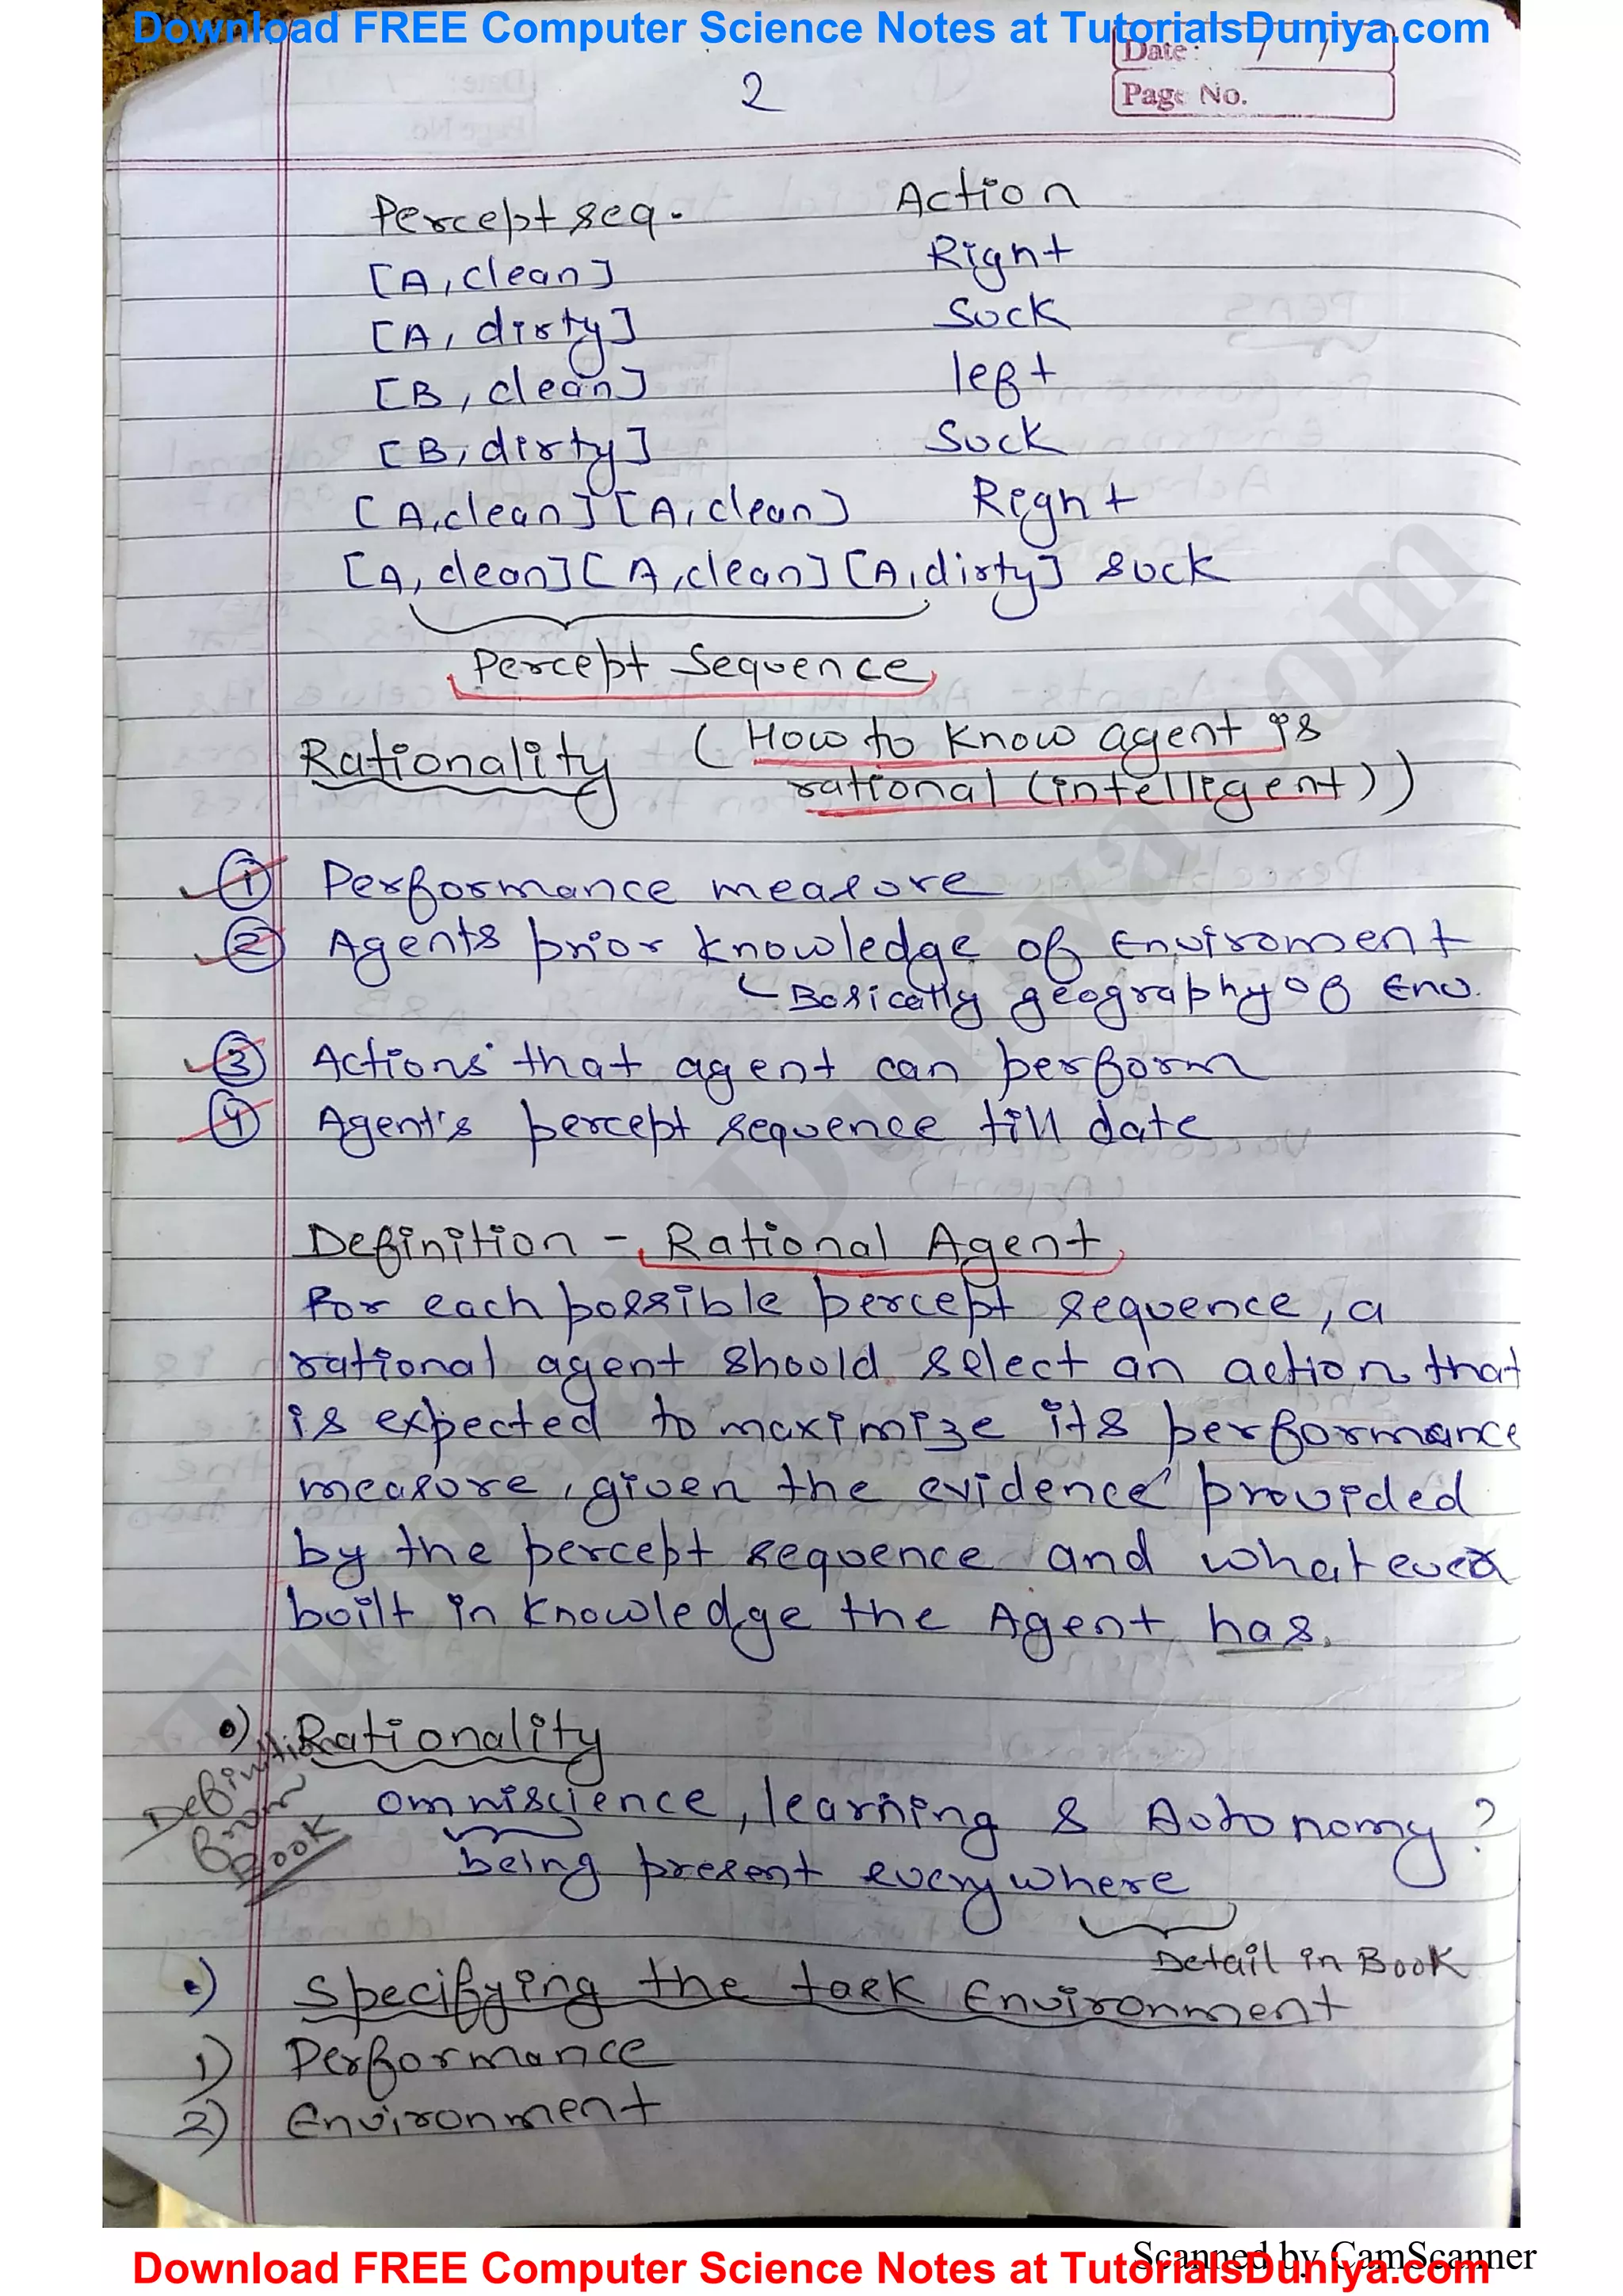 Download FREE Computer Science Notes at TutorialsDuniya.com
Date: / /
Page No.
2
Percept seq. Action
[A, clean] Right
[A, dirty] Suck
[B, clean] left
[B, dirty] Suck
[A, clean] [A, clean] Right
[A, clean] [A, clean] [A, dirty] suck
Percept Sequence
Rationality ( How to know agent is
rational (intelligent) )
① Performance measure
② Agents prior knowledge of Enviroment
Basically geography of Env.
③ Actions that agent can perform
④ Agent's percept sequence till date
Definition - Rational Agent
For each possible percept sequence, a
rational agent should select an action that
is expected to maximize its performance
measure, given the evidence provided
by the percept sequence and whatever
built in knowledge the Agent has.
•) Rationality
Definition
from
Book
omniscience, learning & Autonomy?
being present everywhere
Detail in Book
•) Specifying the task Environment
1) Performance
2) Environment
TutorialsDuniya.com
Scanned by CamScanner
Download FREE Computer Science Notes at TutorialsDuniya.com